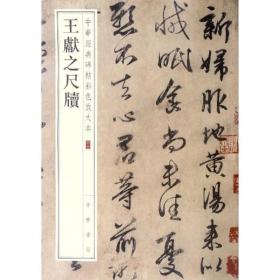 王獻之尺牘
中華經典碑帖彩色放大本
中華書局
新婦服地黃湯來似
減眠食尚未佳憂
懸不去心君等前所